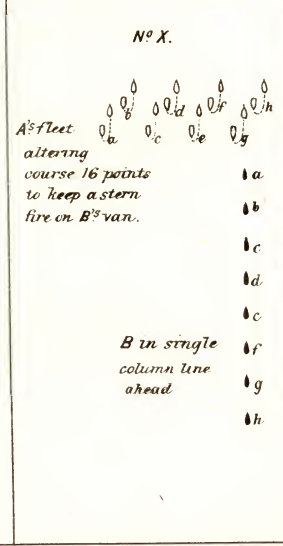 Nº X.
b d f h
a c e g
A's fleet
altering
course 16 points
to keep a stern
fire on B's van.
a
b
c
d
c
B in single f
column line g
ahead
h